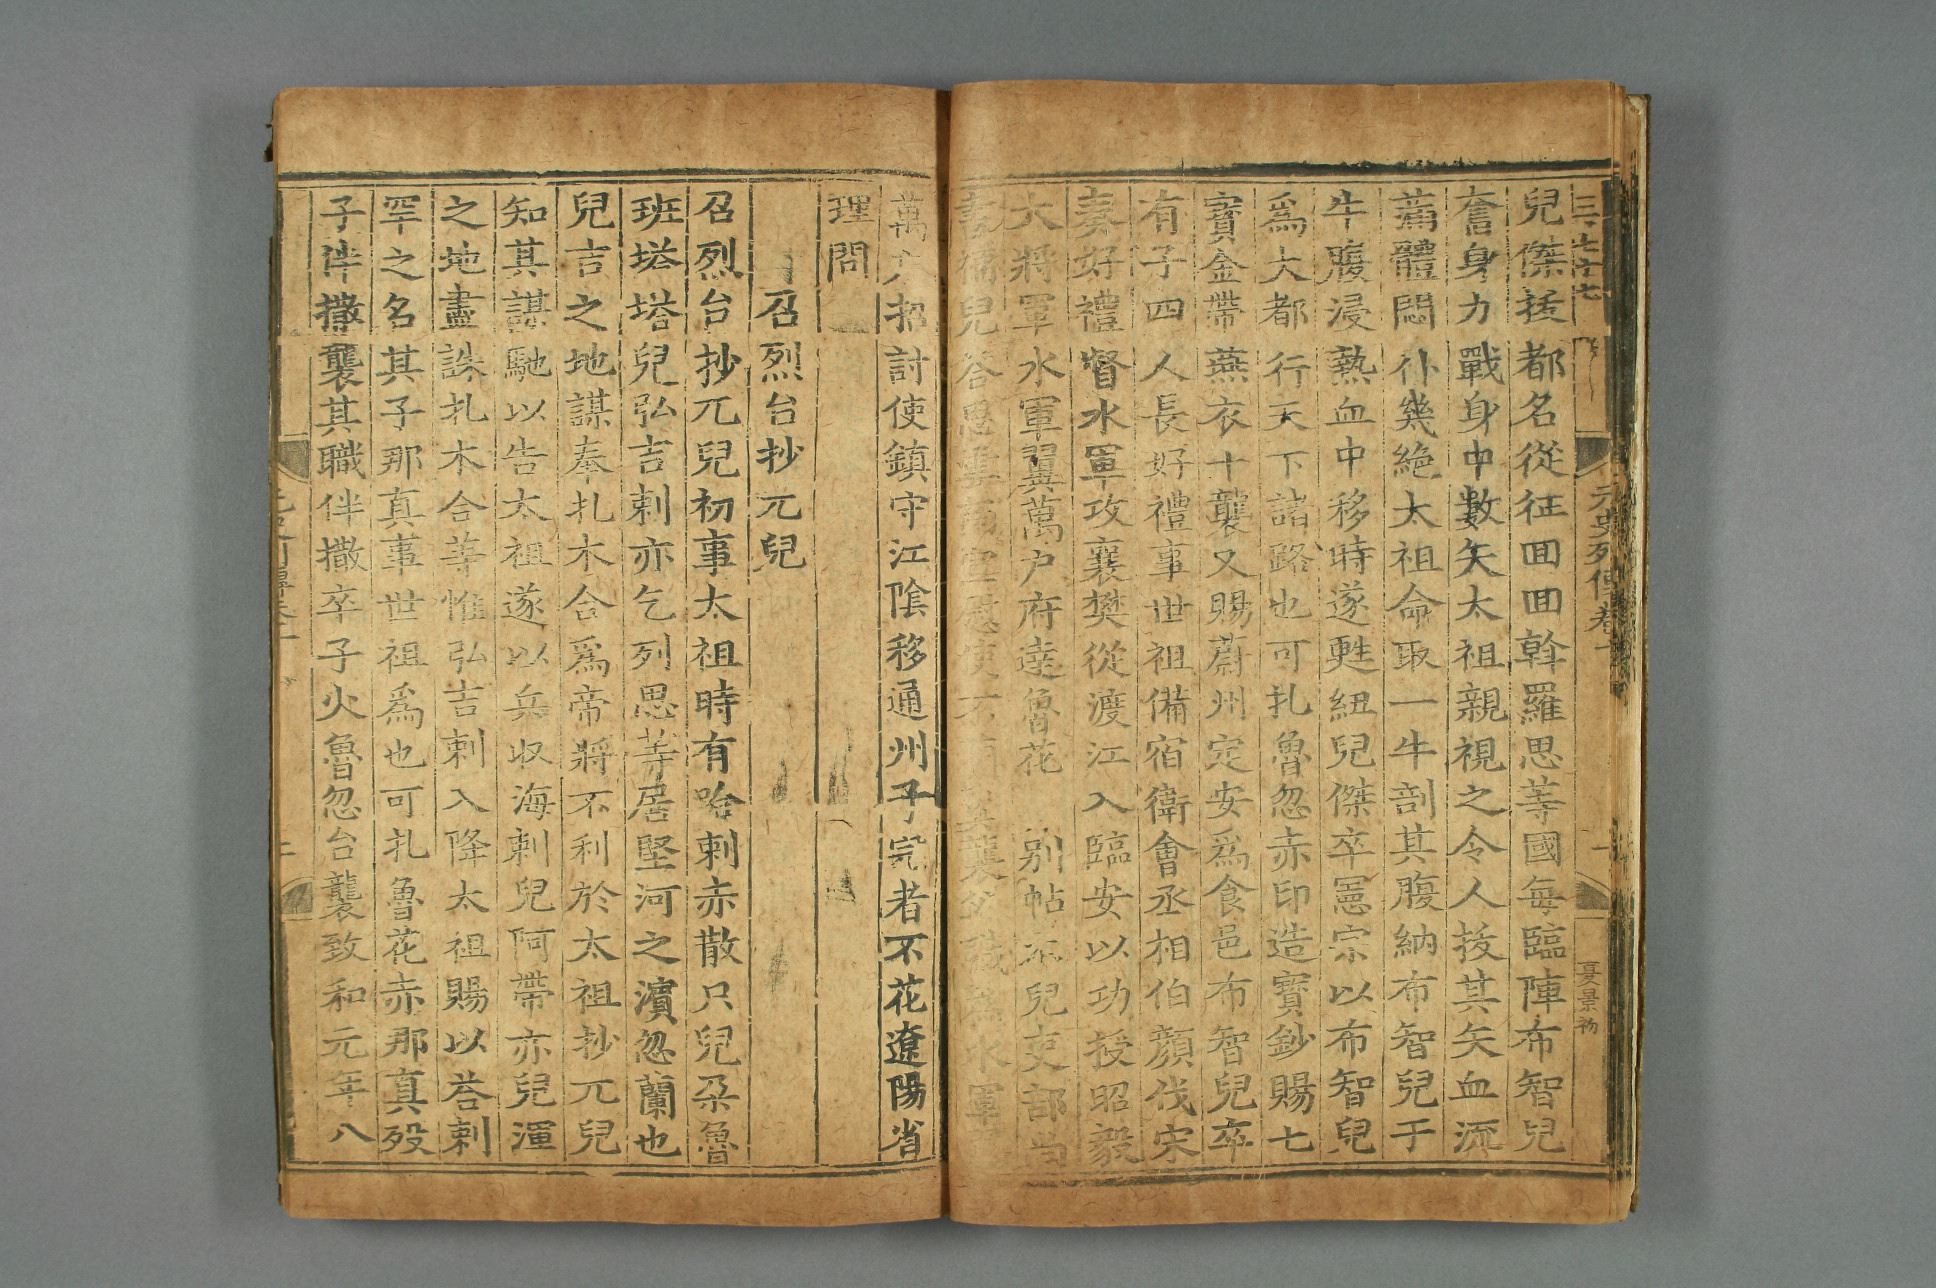 元史列傳卷十
兒傑拔都名從征回回斡羅思等國每臨陣布智兒
奮身力戰身中數矢太祖親視之令人拔其矢血流
滿體悶仆幾絕太祖命取一牛剖其腹納布智兒于
牛腹浸熱血中移時遂甦紐兒傑卒憲宗以布智兒
爲大都行天下諸路也可扎魯忽赤印造寶鈔賜七
寶金帶燕衣十襲又賜蔚州定安爲食邑布智兒卒
有子四人長好禮事世祖備宿衛會丞相伯顔伐宋
奏好禮督水軍攻襄樊從渡江入臨安以功授昭毅
大將軍水軍翼萬戶府達魯花 別帖不兒吏部尚
書補兒答思雲南宣慰使不 襲父職爲水軍
萬戶招討使鎮守江陰移通州子完者不花遼陽省
理問
召烈台抄兀兒
召烈台抄兀兒初事太祖時有哈剌赤散只兒朶魯
班塔塔兒弘吉剌亦乞列思等居堅河之濵忽蘭也
兒言之地謀奉扎木合爲帝將不利於太祖抄兀兒
知其謀馳以告太祖遂以兵収海剌兒阿帶亦兒渾
之地盡誅扎木合等惟弘吉剌入降太祖賜以荅剌
罕之名其子那真事世祖爲也可扎魯花赤那真殁
子伴撒襲其職伴撒卒子火魯忽台襲致和元年八
夏景礿